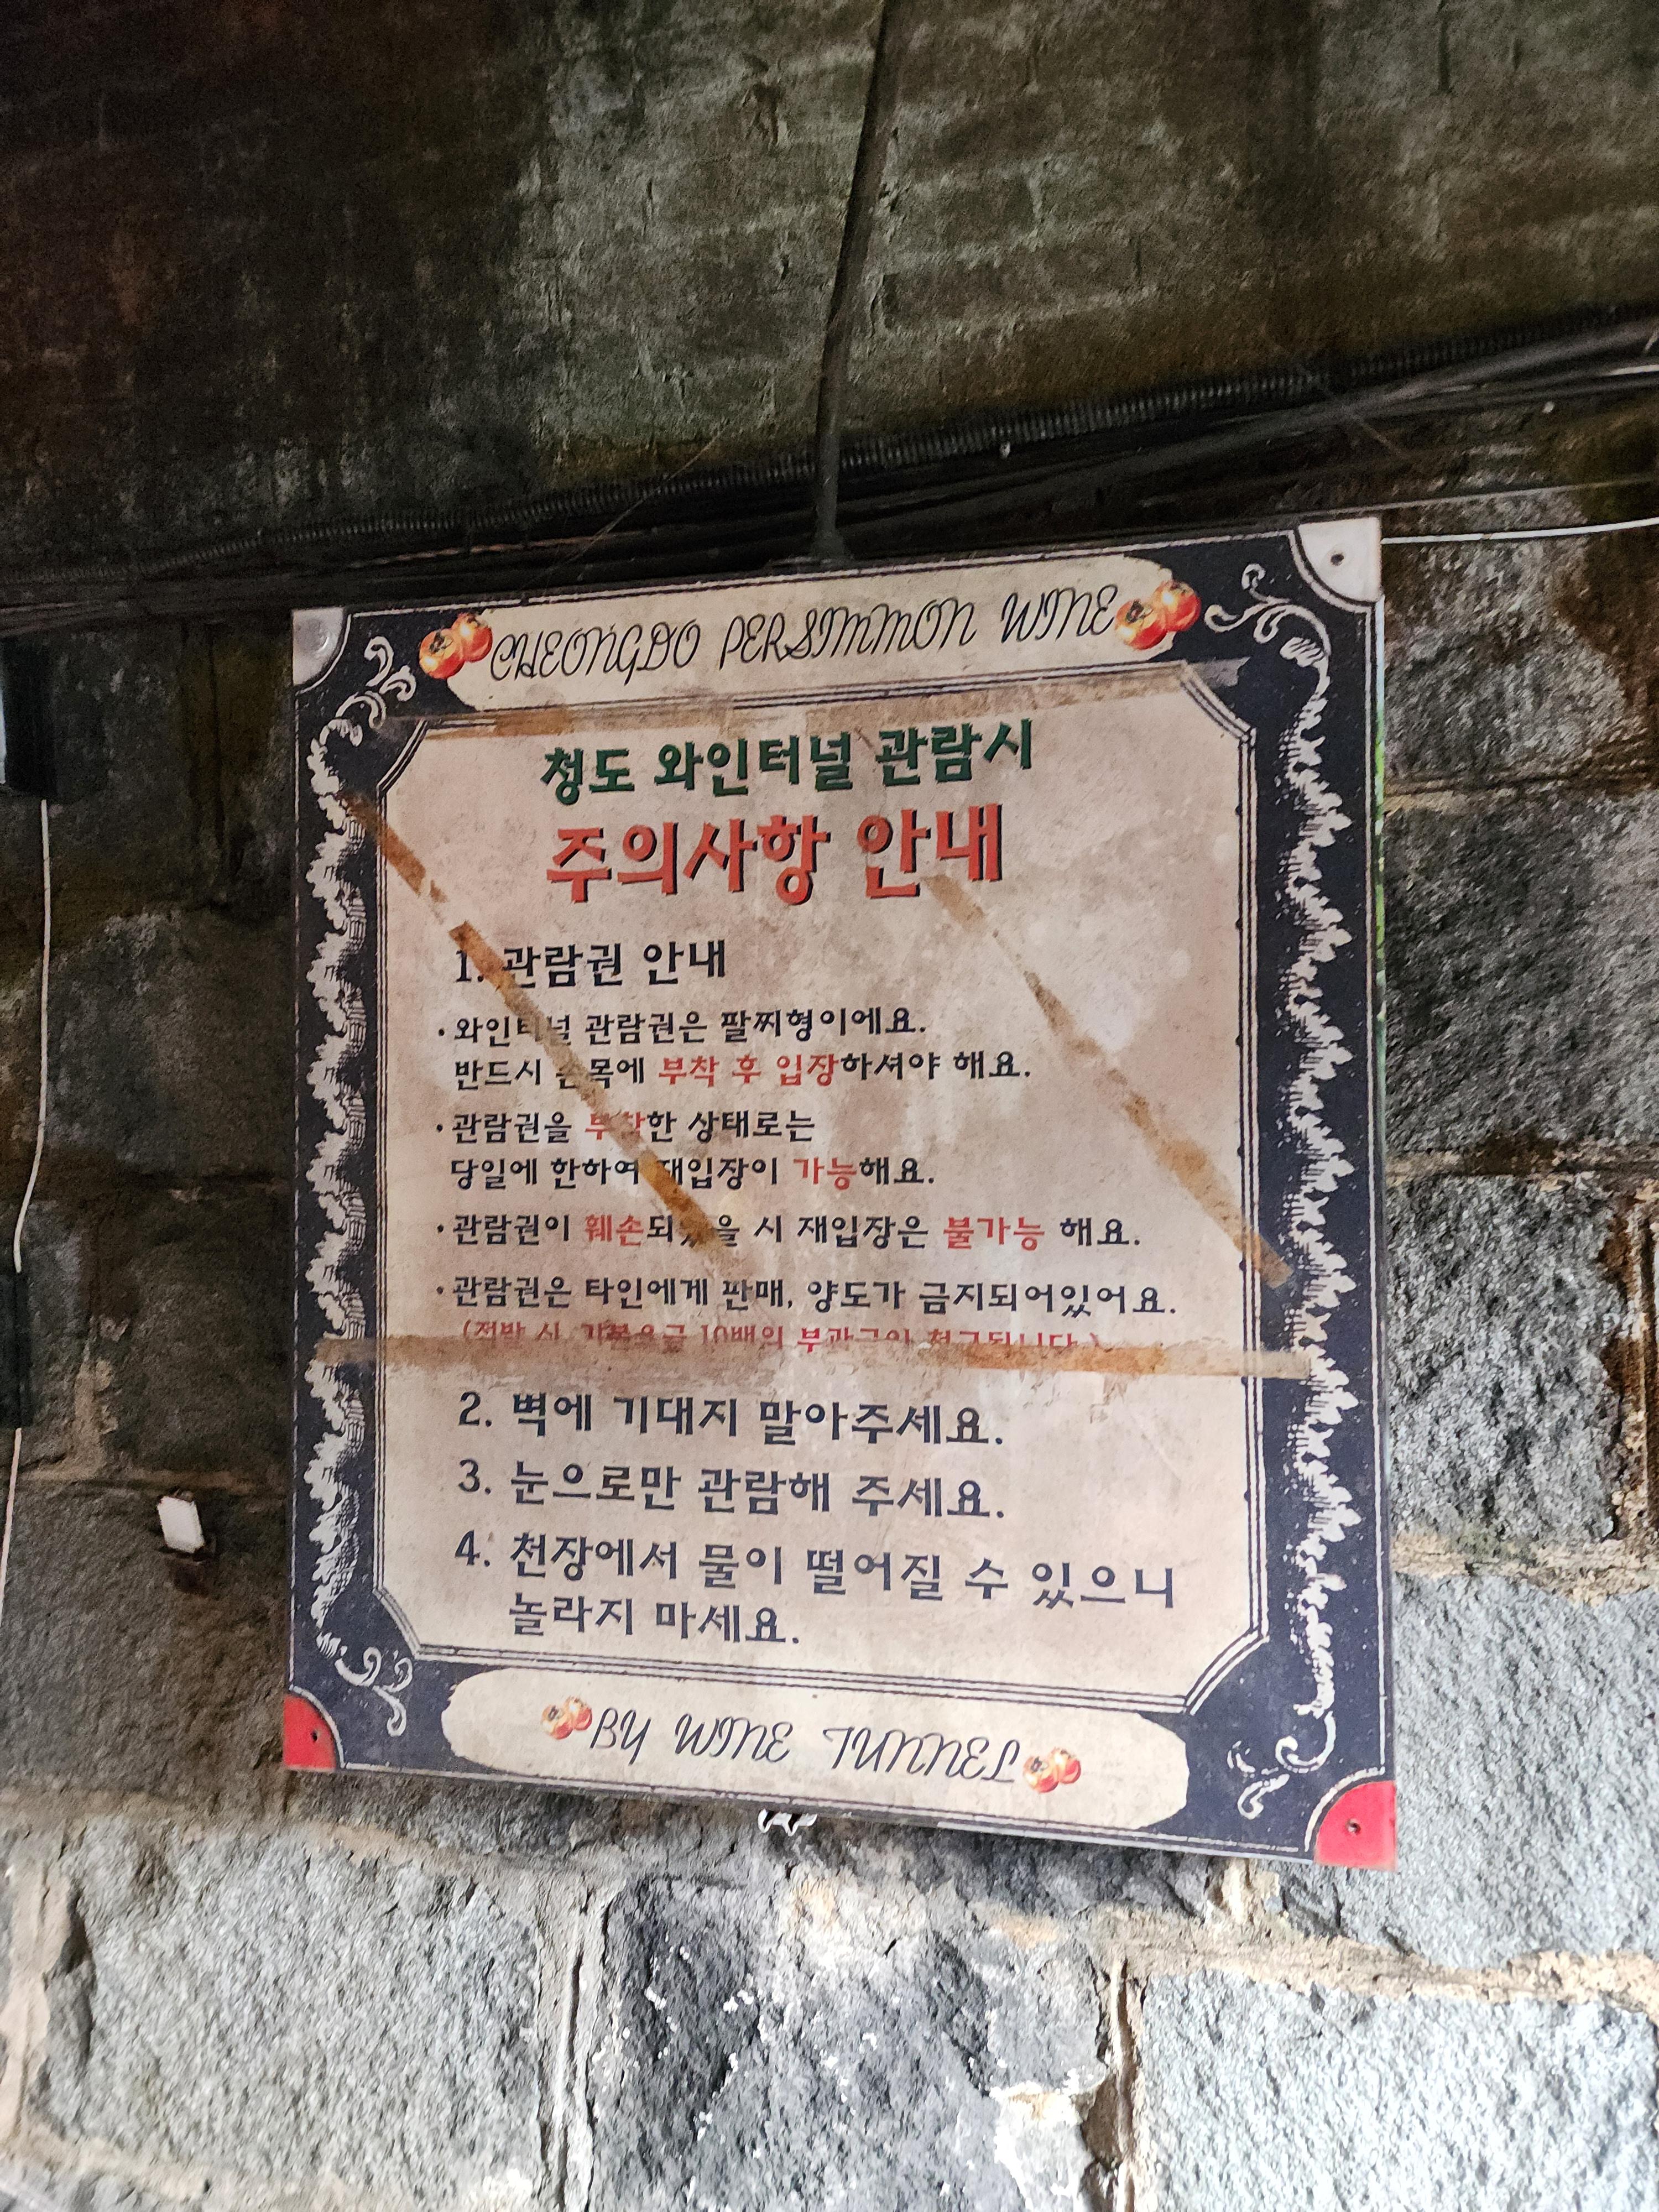 CHEONGDO PERSIMMON WINE
청도 와인터널 관람시
주의사항 안내
1. 관람권 안내
· 와인터널 관람권은 팔찌형이에요.
반드시 손목에 부착 후 입장하셔야 해요.
· 관람권을 부착한 상태로는
당일에 한하여 재입장이 가능해요.
· 관람권이 훼손되었을 시 재입장은 불가능 해요.
· 관람권은 타인에게 판매, 양도가 금지되어있어요.
(적발 시 기본요금 10배의 부과금이 청구됩니다.)
2. 벽에 기대지 말아주세요.
3. 눈으로만 관람해 주세요.
4. 천장에서 물이 떨어질 수 있으니
놀라지 마세요.
BY WINE TUNNEL